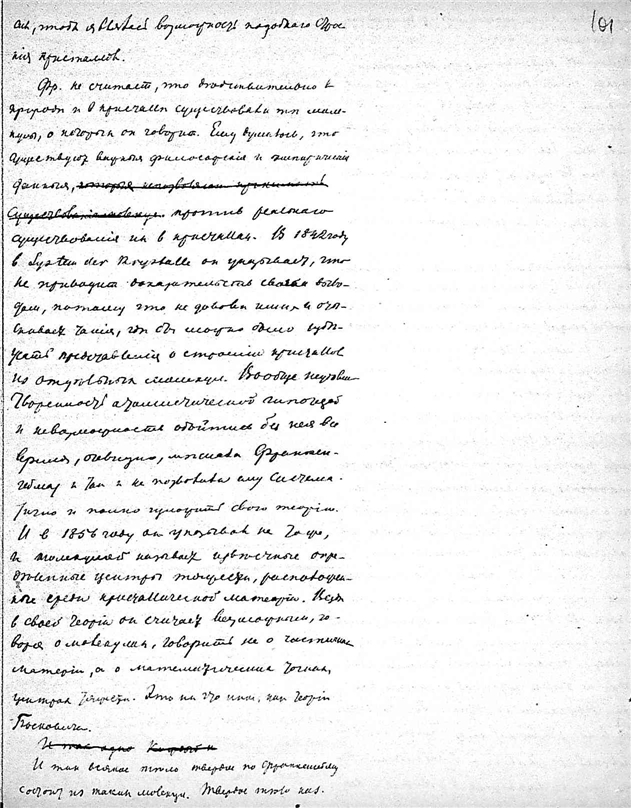 101
ся, чтобы являлась возможность подобнаго строе
нія кристалловъ.
Фр. не считаетъ, что действительно въ
природѣ и въ кристаллѣ существовали тѣ моле-
кулы, о которыхъ он говоритъ. Ему думалось, что
существуютъ философскія и эмпирическія
данныя, которыя
существованія молекул против реальнаго
существованія их в кристаллах. В 1842 году
в System der Krystalle он указывает, что
не приводит доказательств своих выво-
дов, потому что не
, где бы можно было
представленія о строеніи кристаллов
из отдѣльных молекул. Вообще неудовле
творенность атомистической гипотезой
и невозможность обойтись без нея все
время, очевидно, мѣшала Франкен-
гейму и не позволила ему система-
тично и полно изложить свою теорію.
И в 1856 году он указывал на то же,
и молекулой называет извѣстные опре-
дѣленные центры тяжести, расположен-
ные среди кристаллической матеріи. Везде
в своей теоріи он считает возможным, го-
воря о молекулах, говорить не о частицах
матеріи, а о математических точках,
центрах тяжести. Это не что иное, как теорія
Босковича.
И так
И так всякое тѣло твердое по Франкенгейму
состоит из таких молекул. Твердое тѣло наз.